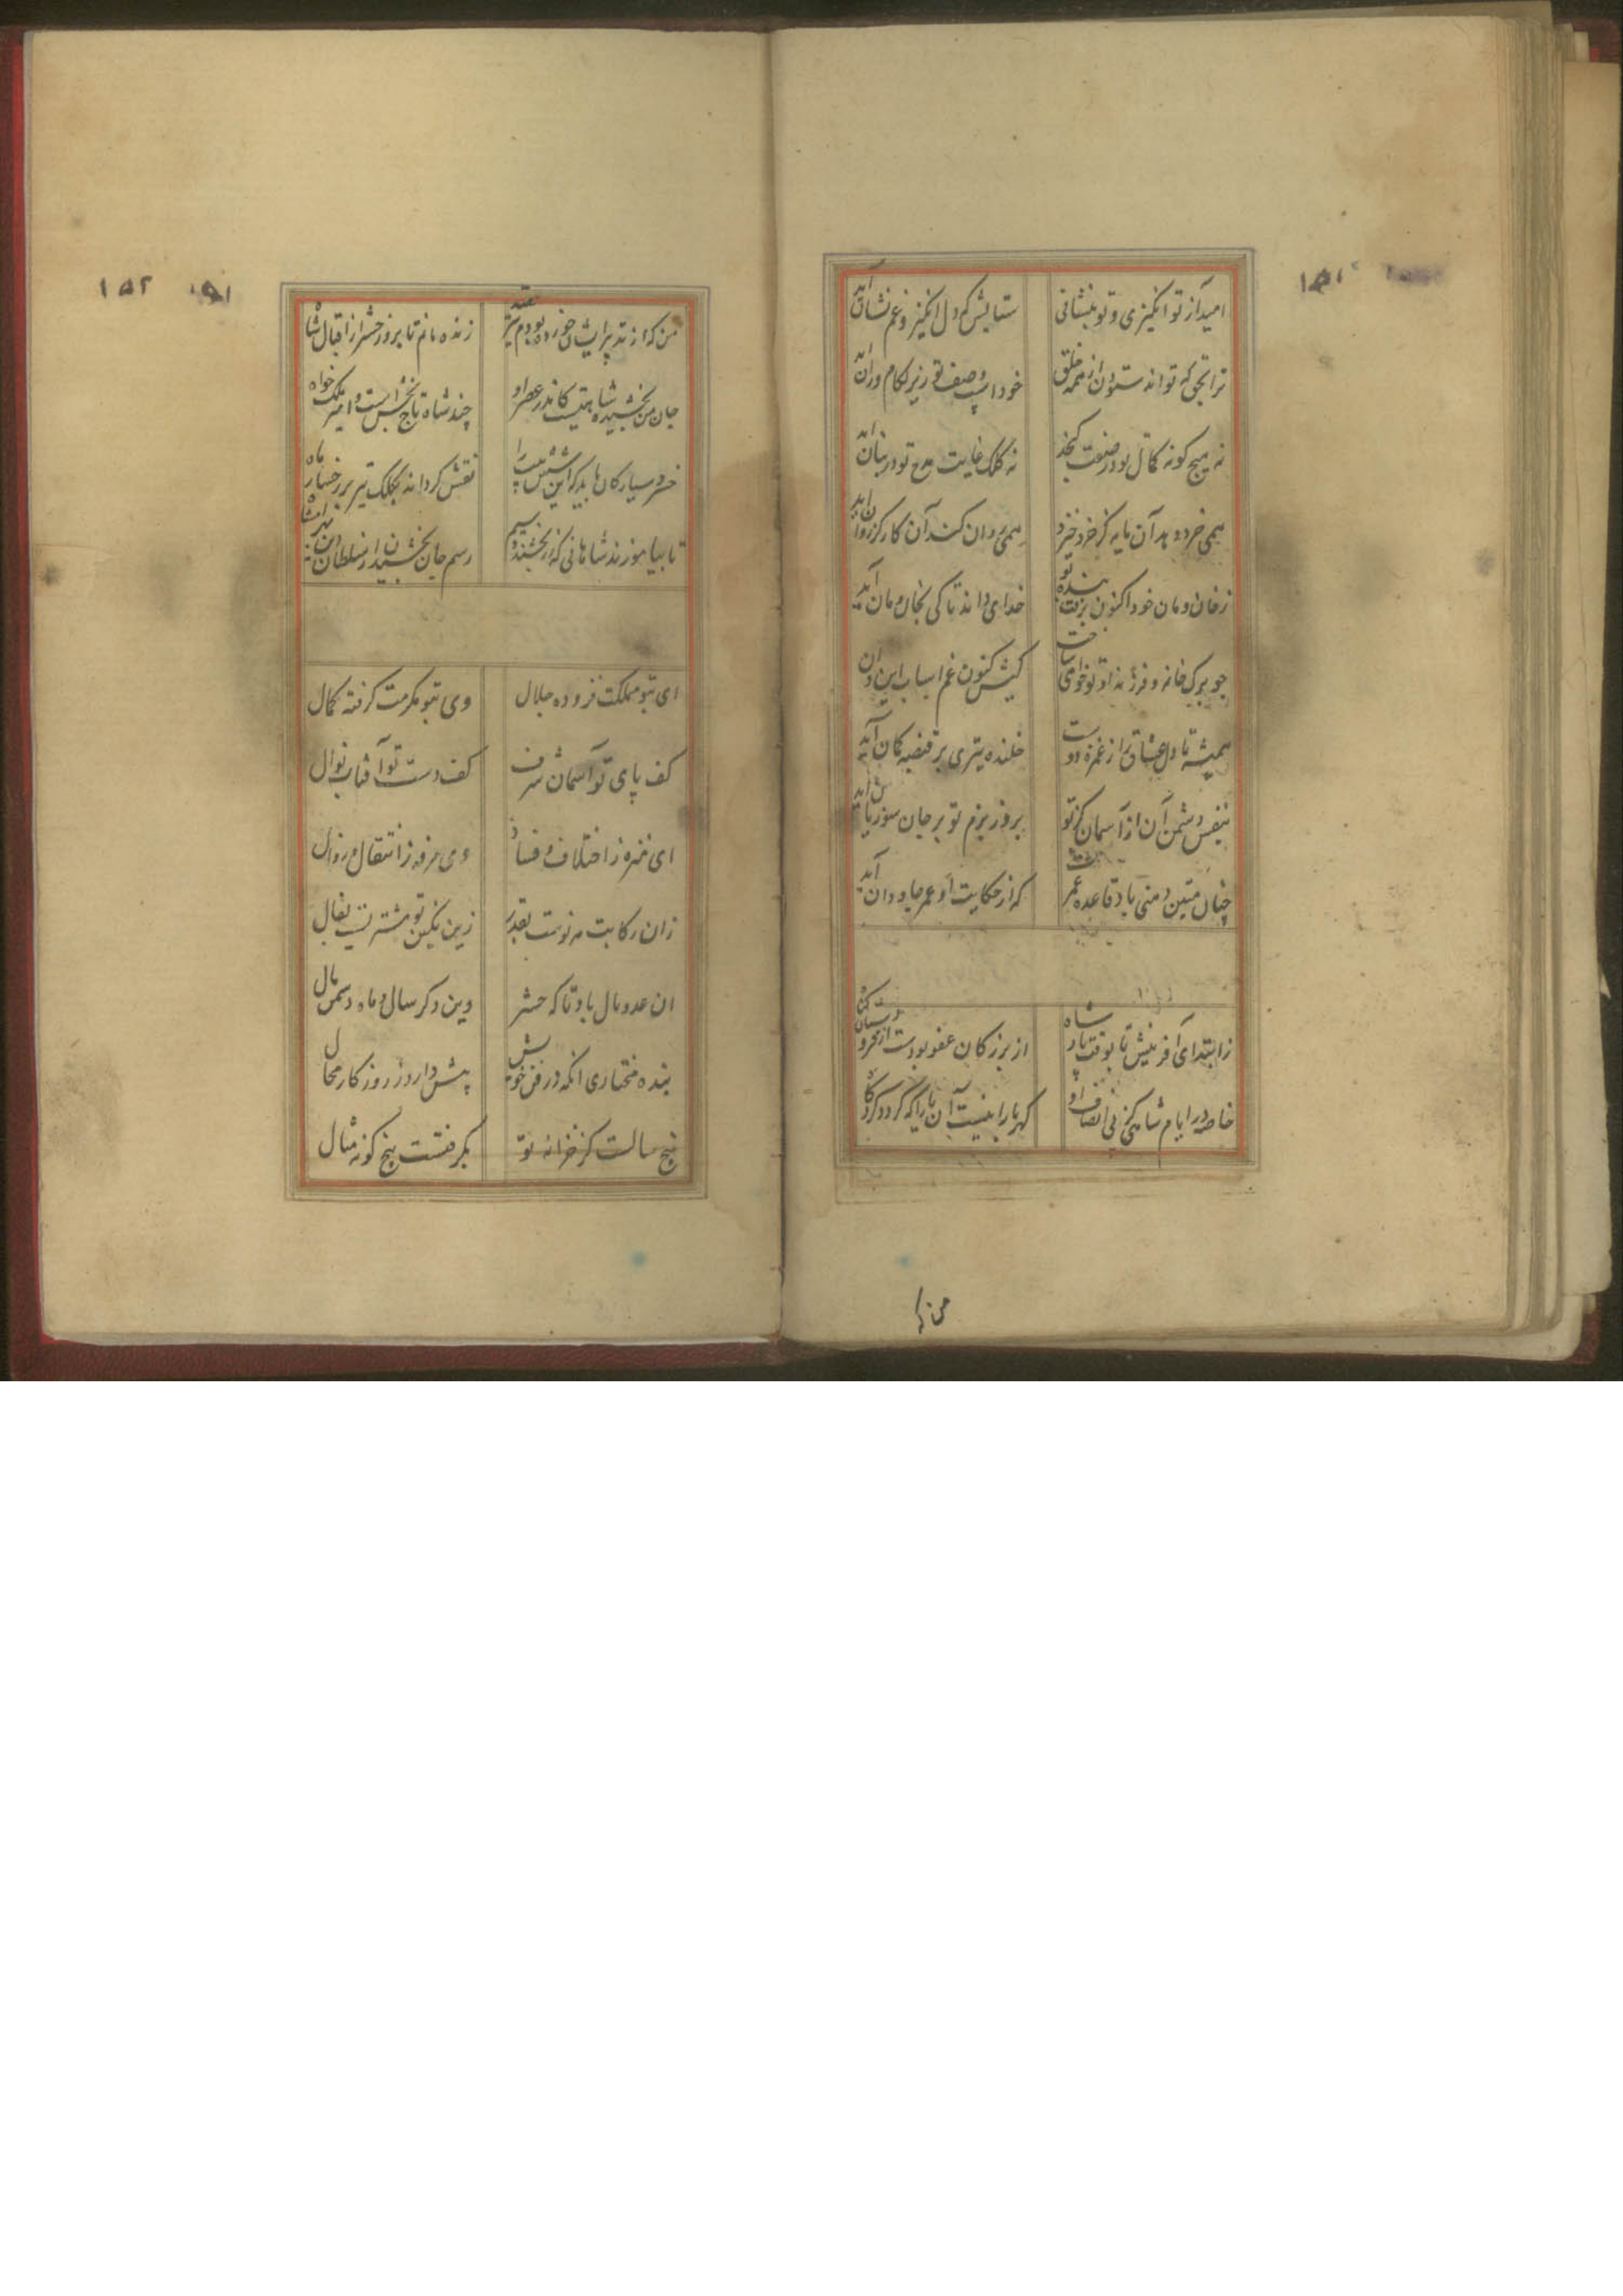 ۱۵۱
امید از تو انگیزی و تو بنشانی
ستایش کم دل انگیز و غم نشان آید
ترا بحق که تواند ستودن از همه خلق
خود اسپ وصف تو زیر لکام وران آید
نه هیچ کونه کمال تو در صفت کنجد
نه کلک غایت مدح تو در بنان آید
همی خرد دهد آن مایه کز خرد خیزد
همی روان کند آن کار کز روان آید
ز خان و مان خود اکنون بزنت بنده تو
خدای داند تا کی بخان و مان آید
چو برک خانه و فرزند او تو خواهی ساخت
کیش کنون غم اسباب این و آن
همیشه تا دل عشاق را ز غمزه دوست
خلنده تیری بر قبضه کمان آید
بنفس دشمن آن از آسمان کز تو
بروز بزم تو بر جان سوزیان آید
چنان متین و منی باد قاعده عمرت
که از حکایت او عمر جاودان آید
ز ابتدای آفرینش تا بوقت پادشاه
از بزرکان عفو بودست از فرودستان کناه
خاصه در ایام شاهی کز پی انصاف او
کهربا را نیست آن یارا که کردد کرد کاه
من که
۱۵۲ ۱۵۱
من که از تدبیر ایشان خورده بودم تیر قصد
زنده مانم تا بروز حشر از اقبال شاه
جان من بخشیده شاهیست کاندر عصر او
چند شاه تاج بخش است و امیر ملک خواه
خسرو سیارکان باید که این شش بیت را
نقش کرداند بکلک تیر بر رخسار ماه
تا بیاموزند شاهانی که زر بخشند و سیم
رسم جان بخشیدن از سلطان دین بهرامشاه
ای بتو مملکت فزوده جلال
وی بتو مکرمت کرفته کمال
کف پای تو آسمان شرف
کف دست تو آفتاب نوال
ای منزه ز اختلاف و فساد
وی مرفه ز انتقال و زوال
زان رکابت مه نوست بقدر
زین نکین تو مشتریست بفال
ان عدو مال باد تا که حشر
وین دکر سال و ماه دشمن مال
بنده مختاری انکه در فن خویش
پیش دارد ز روزکار محال
پنج سالست کز خزانه تو
بکرفتست پنج کونه مثال